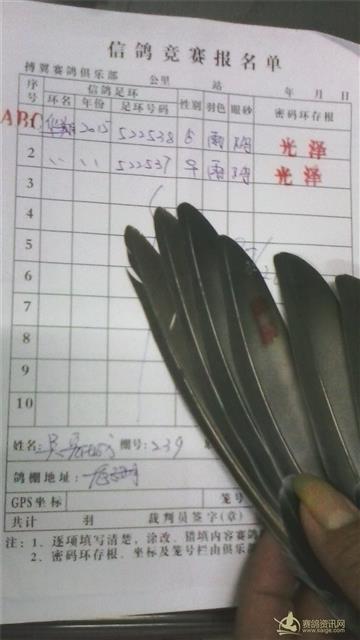 信鸽竞赛报名单
搏翼赛鸽俱乐部 公里 站 年 月 日
序号 信鸽足环 性别 羽色 眼砂 密码环存根
环名 年份 足环号码
ABC 华翔 2015 522538 雨 光泽
2 〃 〃 522537 雨 光泽
3
4
5
6
7
8
9
10
姓名: 棚号:239
鸽棚地址:
GPS坐标 笼号
共计 羽 裁判员签字(章)
注:1、逐项填写清楚,涂改、错填内容赛鸽
2、密码环存根、坐标及笼号栏由俱乐部
赛鸽资讯网
www.saige.com